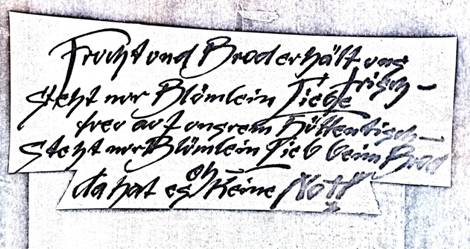 Frucht und Brod erhält uns
frisch –
steht nur Blömlein Liebe
frei auf unsrem Hüttentisch –
Steht nur Blömlein Lieb beim Brod
da hat es oh keine Noth